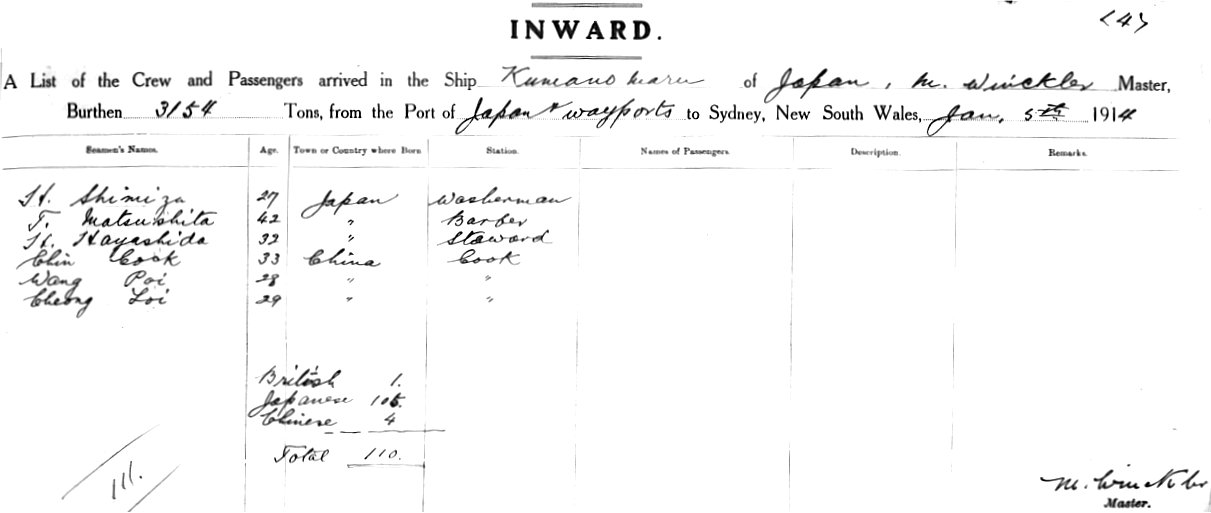 <4>
INWARD.
A List of the Crew and Passengers arrived in the Ship Kumano Maru of Japan, M. Winckler Master,
Burthen 3154 Tons, from the Port of Japan & wayports to Sydney, New South Wales, Jan, 5th 1914
Seamen's Names. Age. Town or Country where Born Station. Names of Passengers. Description. Remarks.
H. Shimizu 27 Japan Washerman
T. Matsushita 42 " Barber
H. Hayashida 32 " Steward
Chin Cook 33 China Cook
Wang Poi 28 " "
Cheong Loi 29 " "
British 1.
Japanese 105.
Chinese 4
Total 110.
111.
M. Winckler
Master.